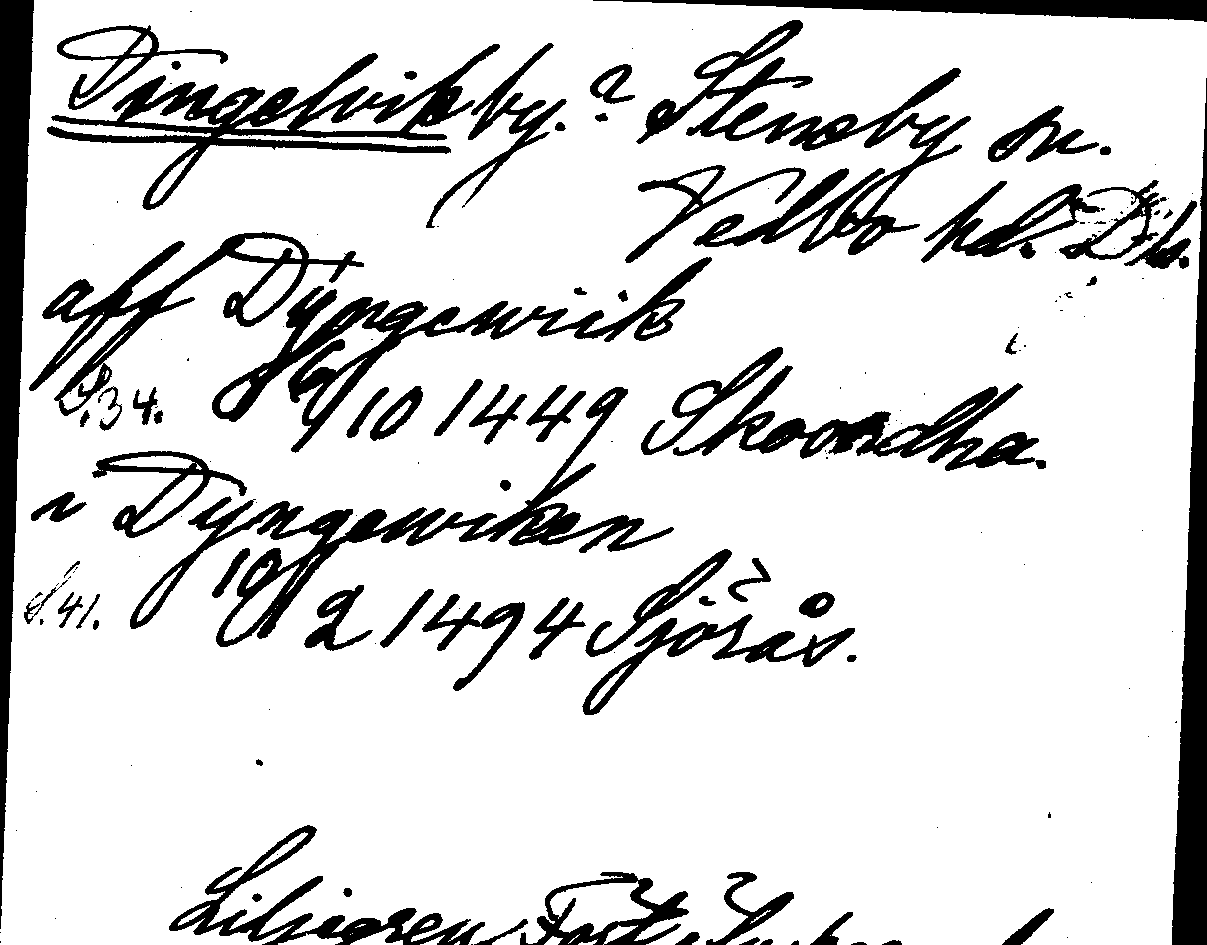 Dingelvik by.? Steneby sn.
Vedbo hd. Dls.
aff Dÿngewiik
S.34. 6/10 1449 Skoondha.
i Dyngewiken
S.41. 10/2 1494 Sjörås.
Liljegren, Fort